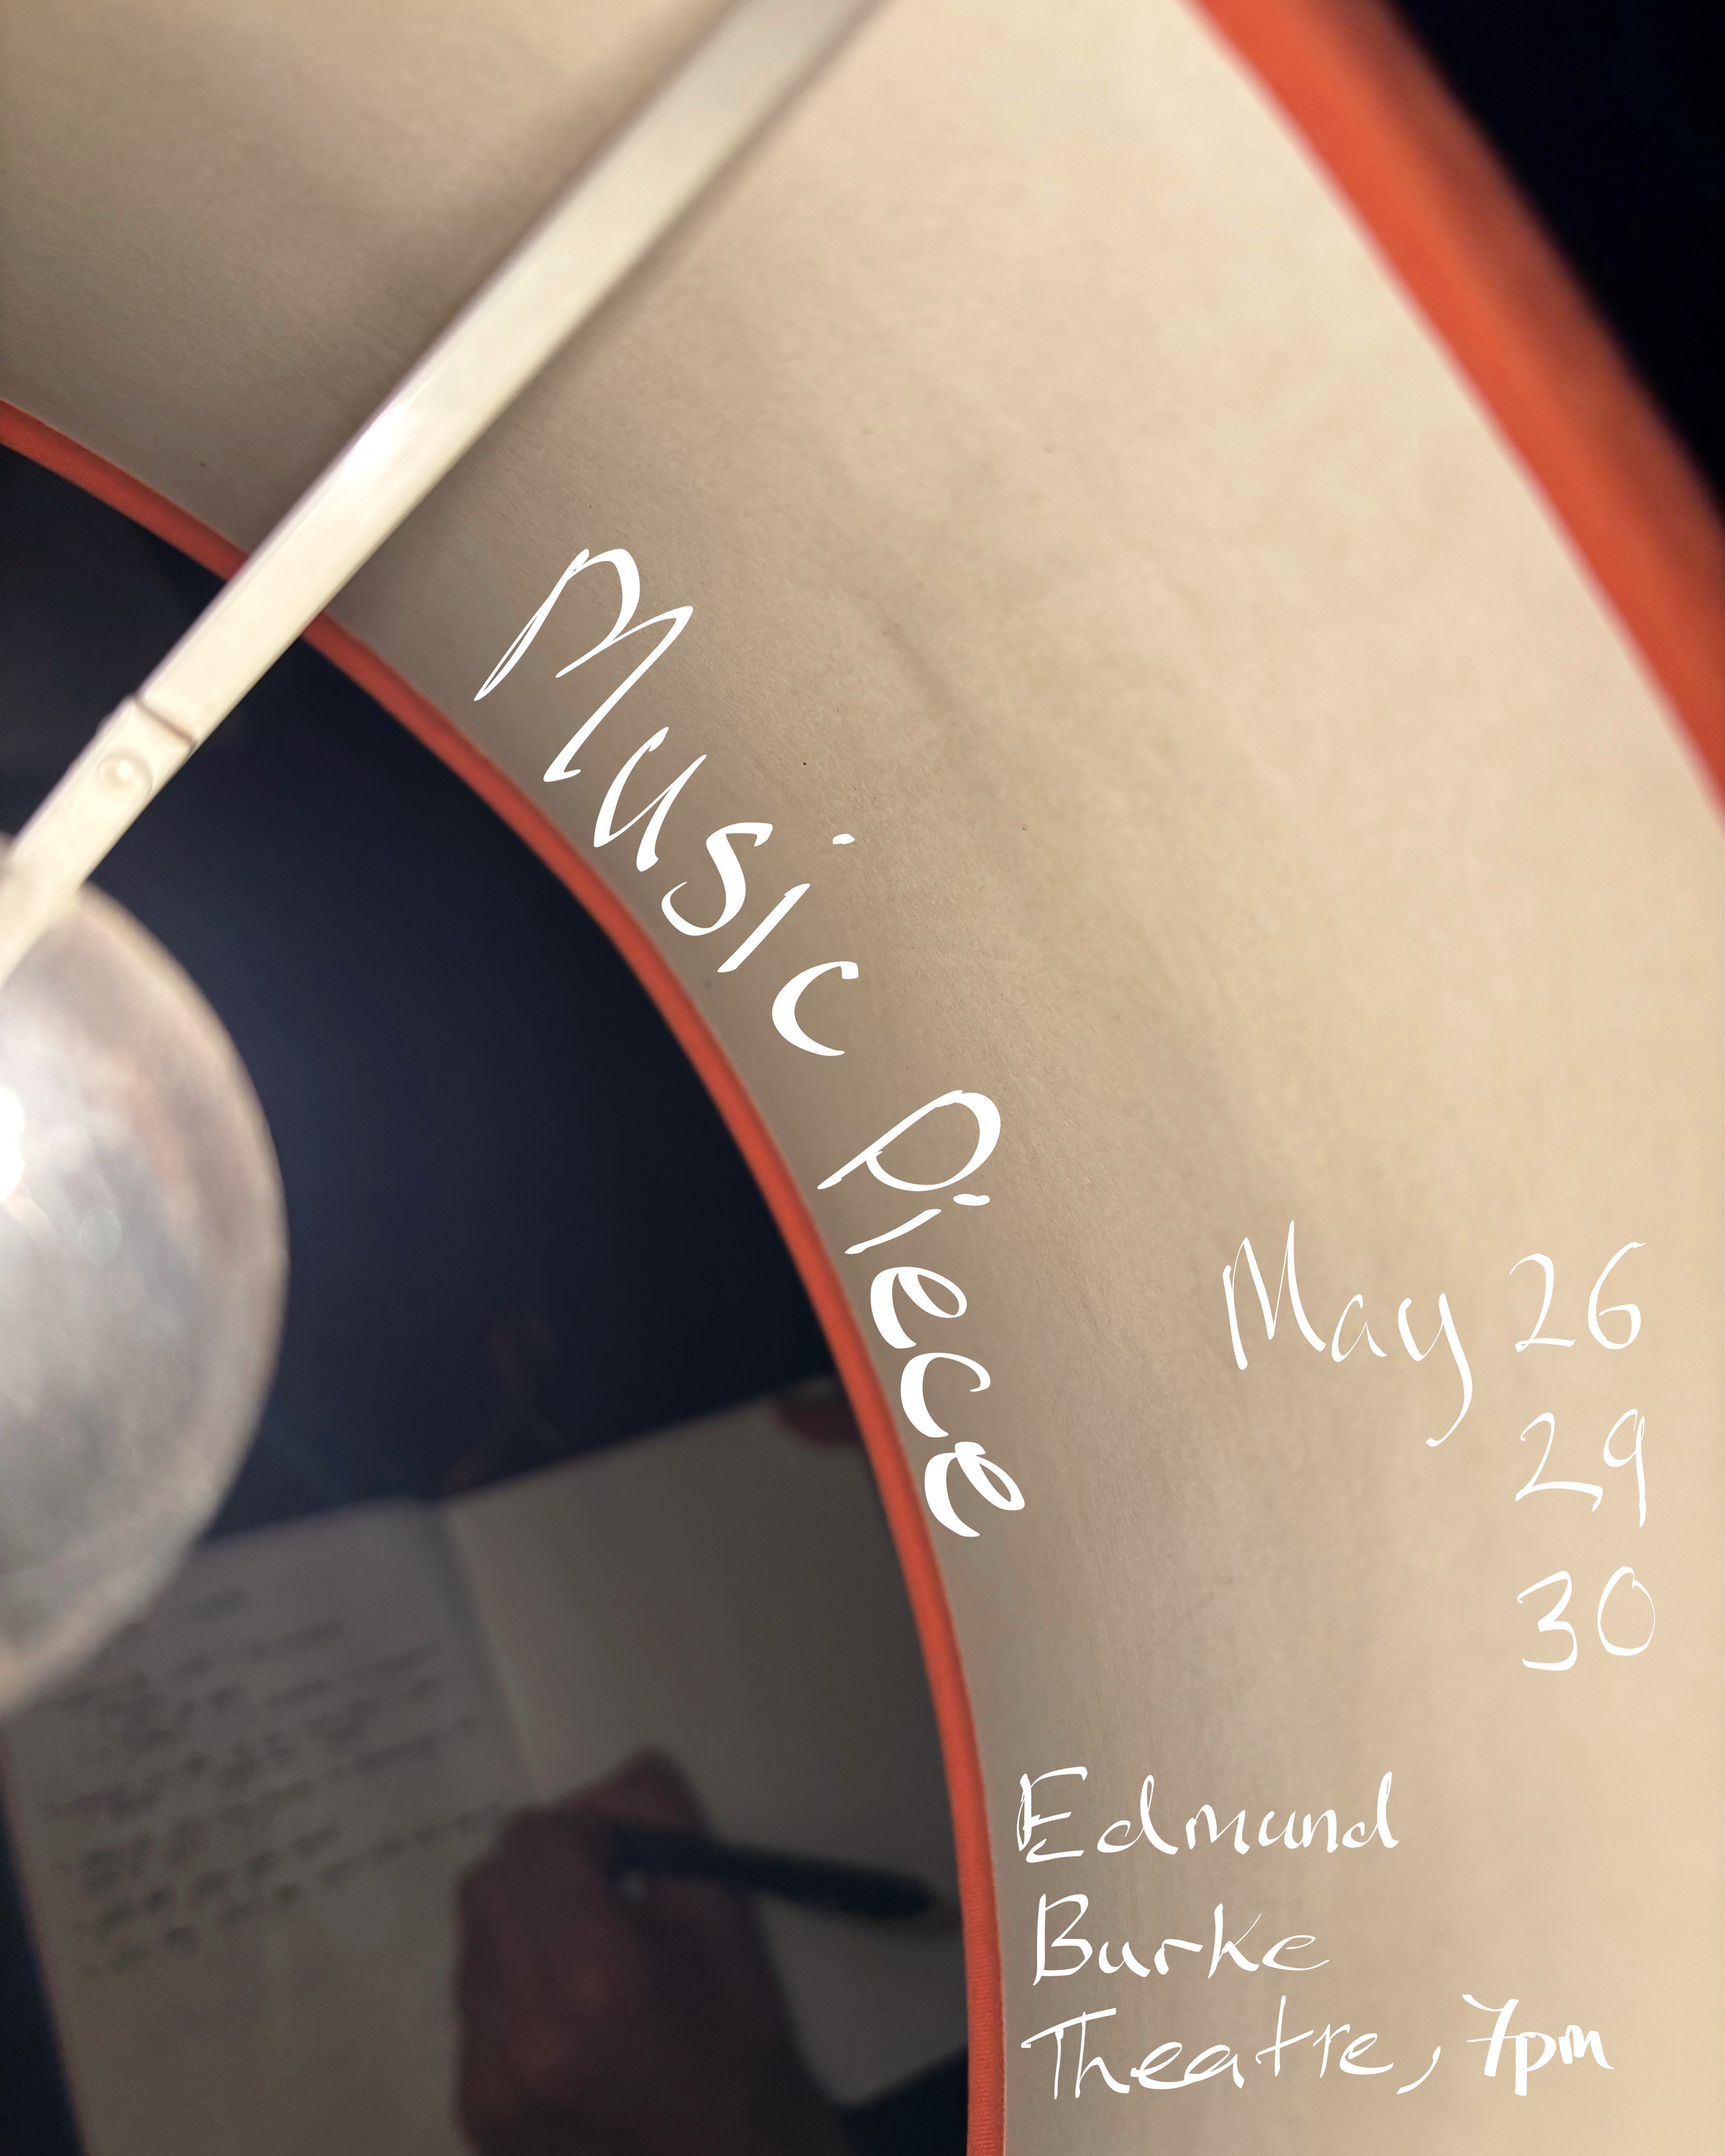 Music Piece
May 26
29
30
Edmund
Burke
Theatre, 7pm